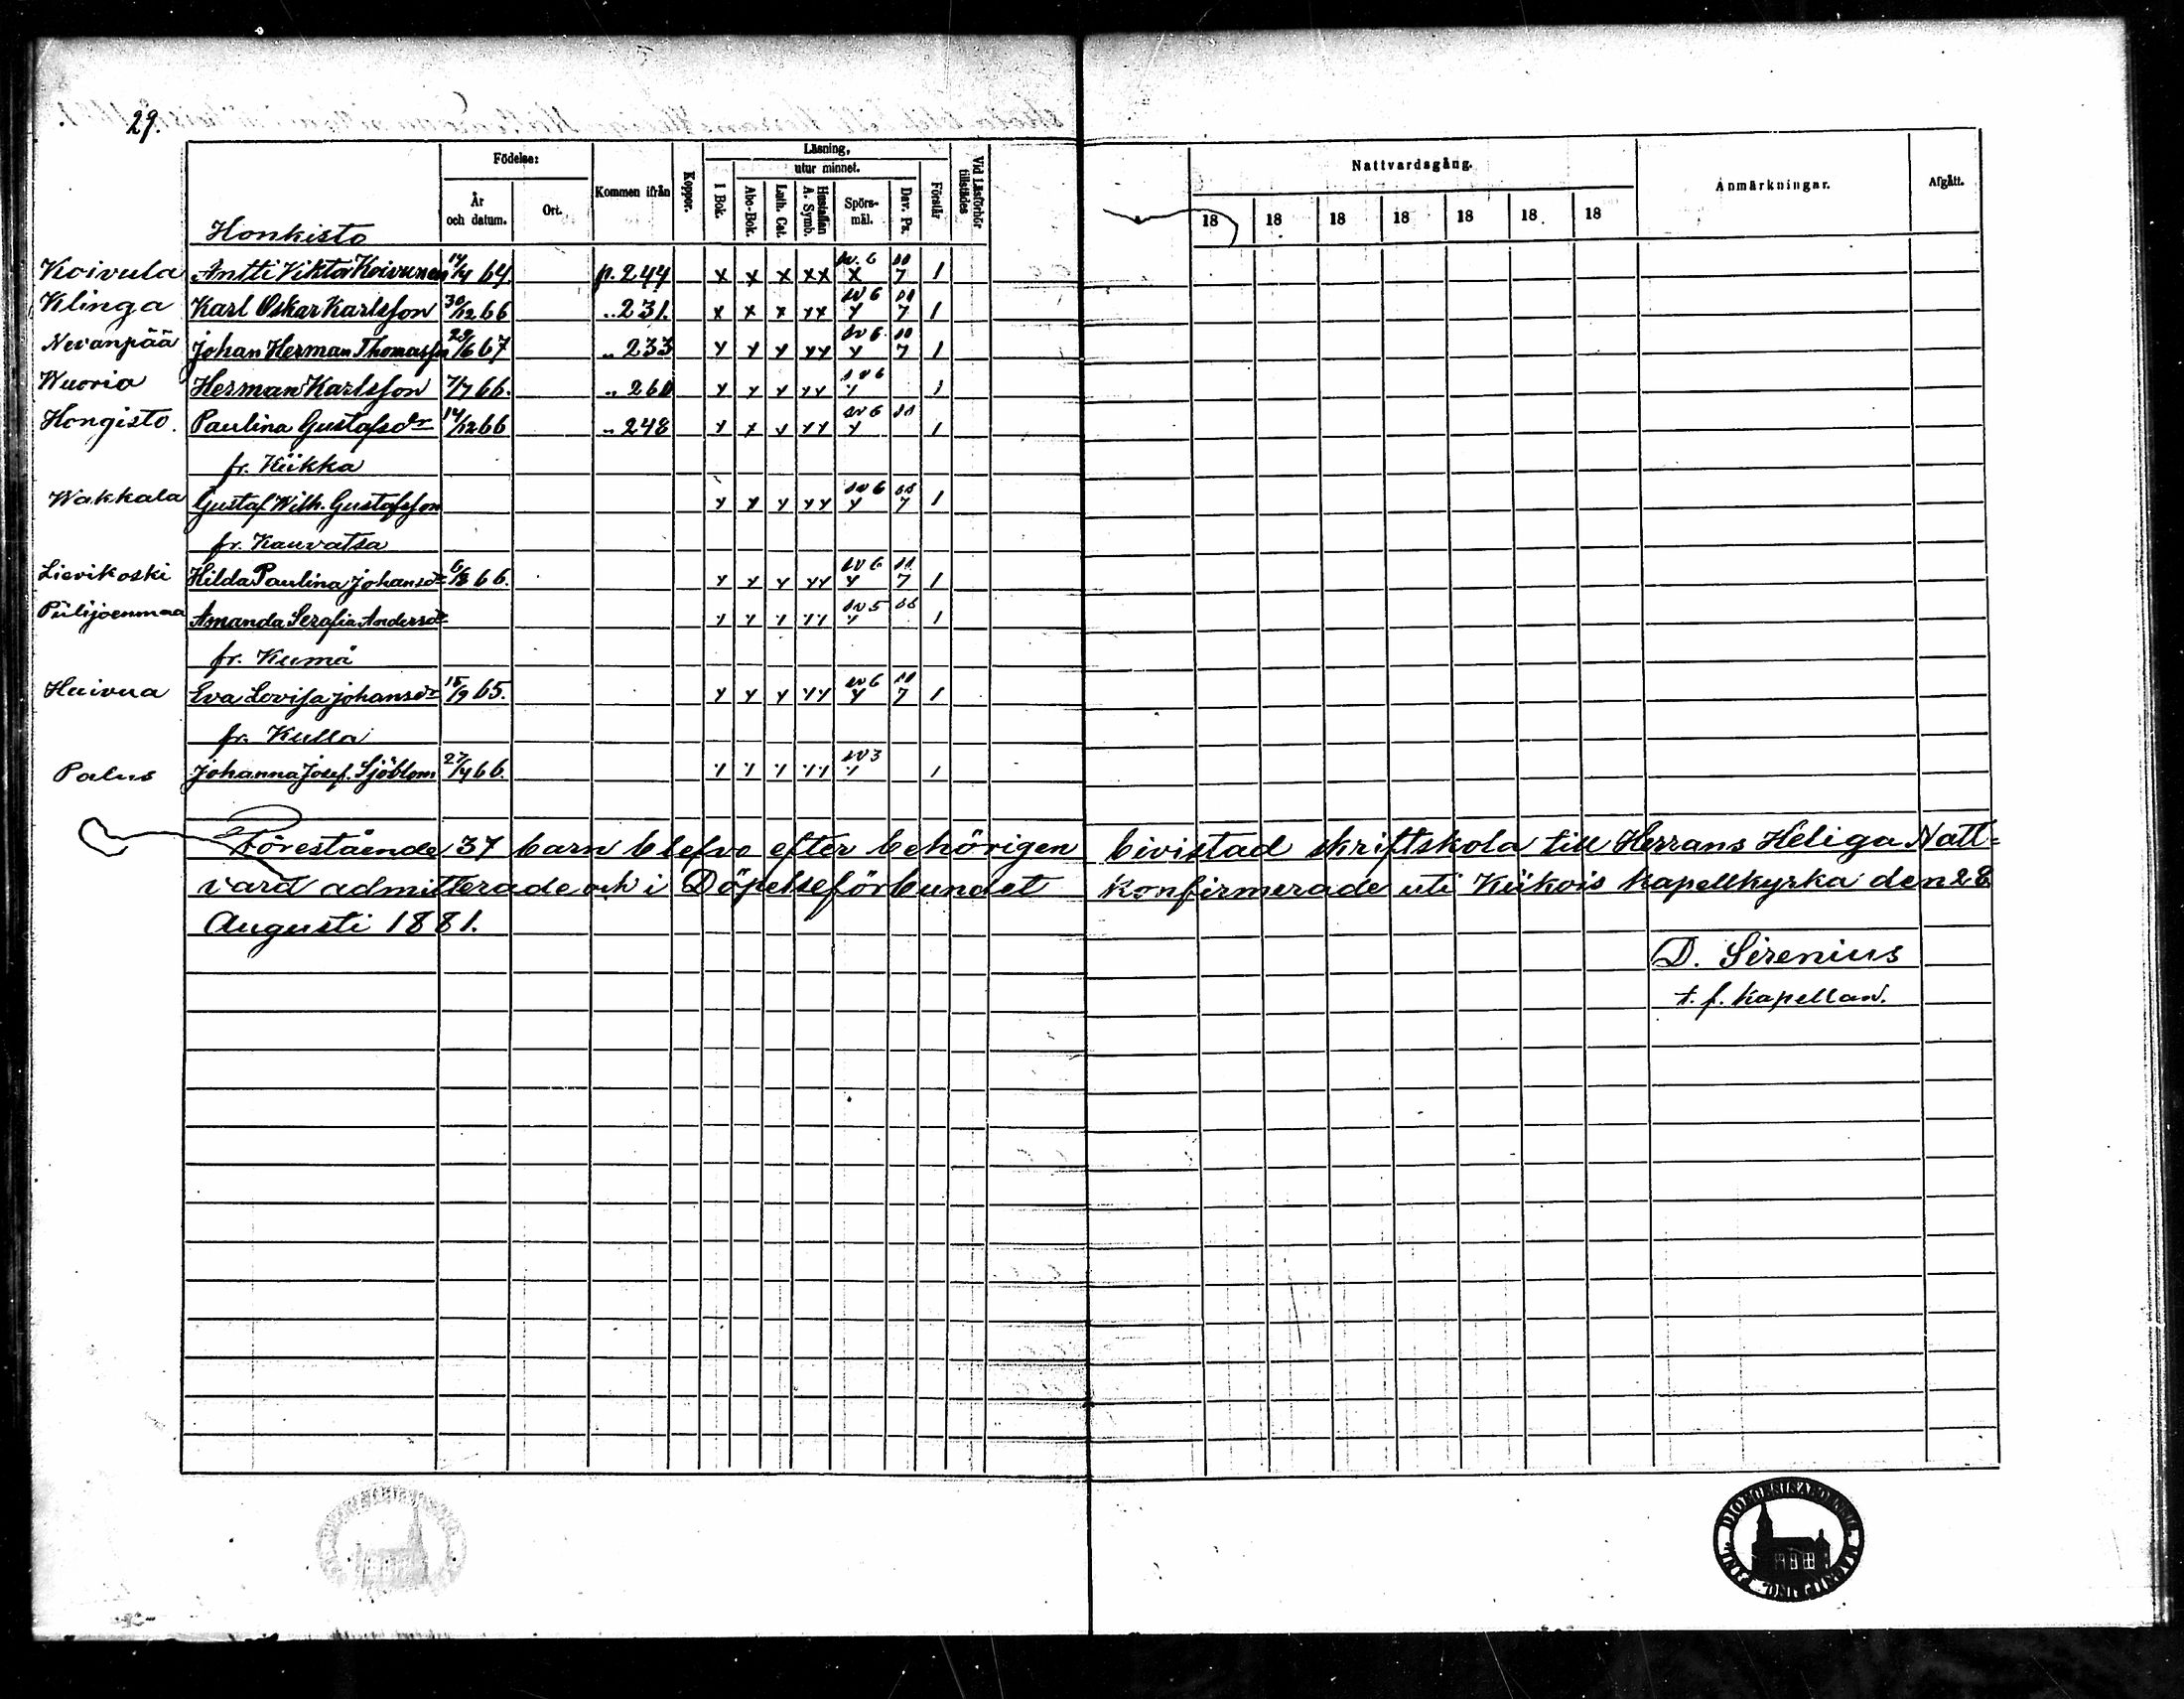 29.
Födelse:
Kommen ifrån
Koppor.
Läsning,
utur minnet.
År
och datum.
Ort.
I Bok.
Abc-Bok.
Luth. Cat.
Hustaflan
A. Symb.
Spörs-
mål.
Dav. Ps.
Förstår
Vid Läsförhör
tillstädes
Nattvardsgång.
Anmärkningar.
Afgått.
18 18 18 18 18 18 18
Honkisto
Koivula Antti Viktor Koivunen 14/4 64. p. 244 x x x xx sv. 6 x 7 1
Klinga Karl Oskar Karlsson 30/12 66 „ 231. x x x xx sv 6 x 7 1
Nevanpää Johan Herman Thomasson 29/6 67 „ 233 x x x xx sv 6. x 7 1
Wuoria Herman Karlsson 7/7 66. „ 260 x x x xx sv 6 x 1
Hongisto. Paulina Gustafsdr 14/12 66 „ 248 x x x xx sv 6 x 1
fr. Kiikka
Wakkala Gustaf Wilh. Gustafsson x x x xx sv 6 x 7 1
fr. Kauvatsa
Lievikoski Hilda Paulina Johansdr 6/8 66. x x x xx sv 6 x 7 1
Piilijoenmaa Amanda Serafia Andersdr x x x xx sv 5 x 1
fr. Kumå
Huivua Eva Lovisa Johansdr 15/9 65. x x x xx sv 6 x 7 1
fr. Kulla
Palus Johanna Josef. Sjöblom 27/4 66. x x x xx sv 3 x 1
Förestående 37 barn blefvo efter behörigen bivistad skriftskola till Herrans Heliga Natt=
vard admitterade och i Döpelseförbundet konfirmerade uti Kiikois kapellkyrka den 28
Augusti 1881.
D. Sirenius
t. f. Kapellan.